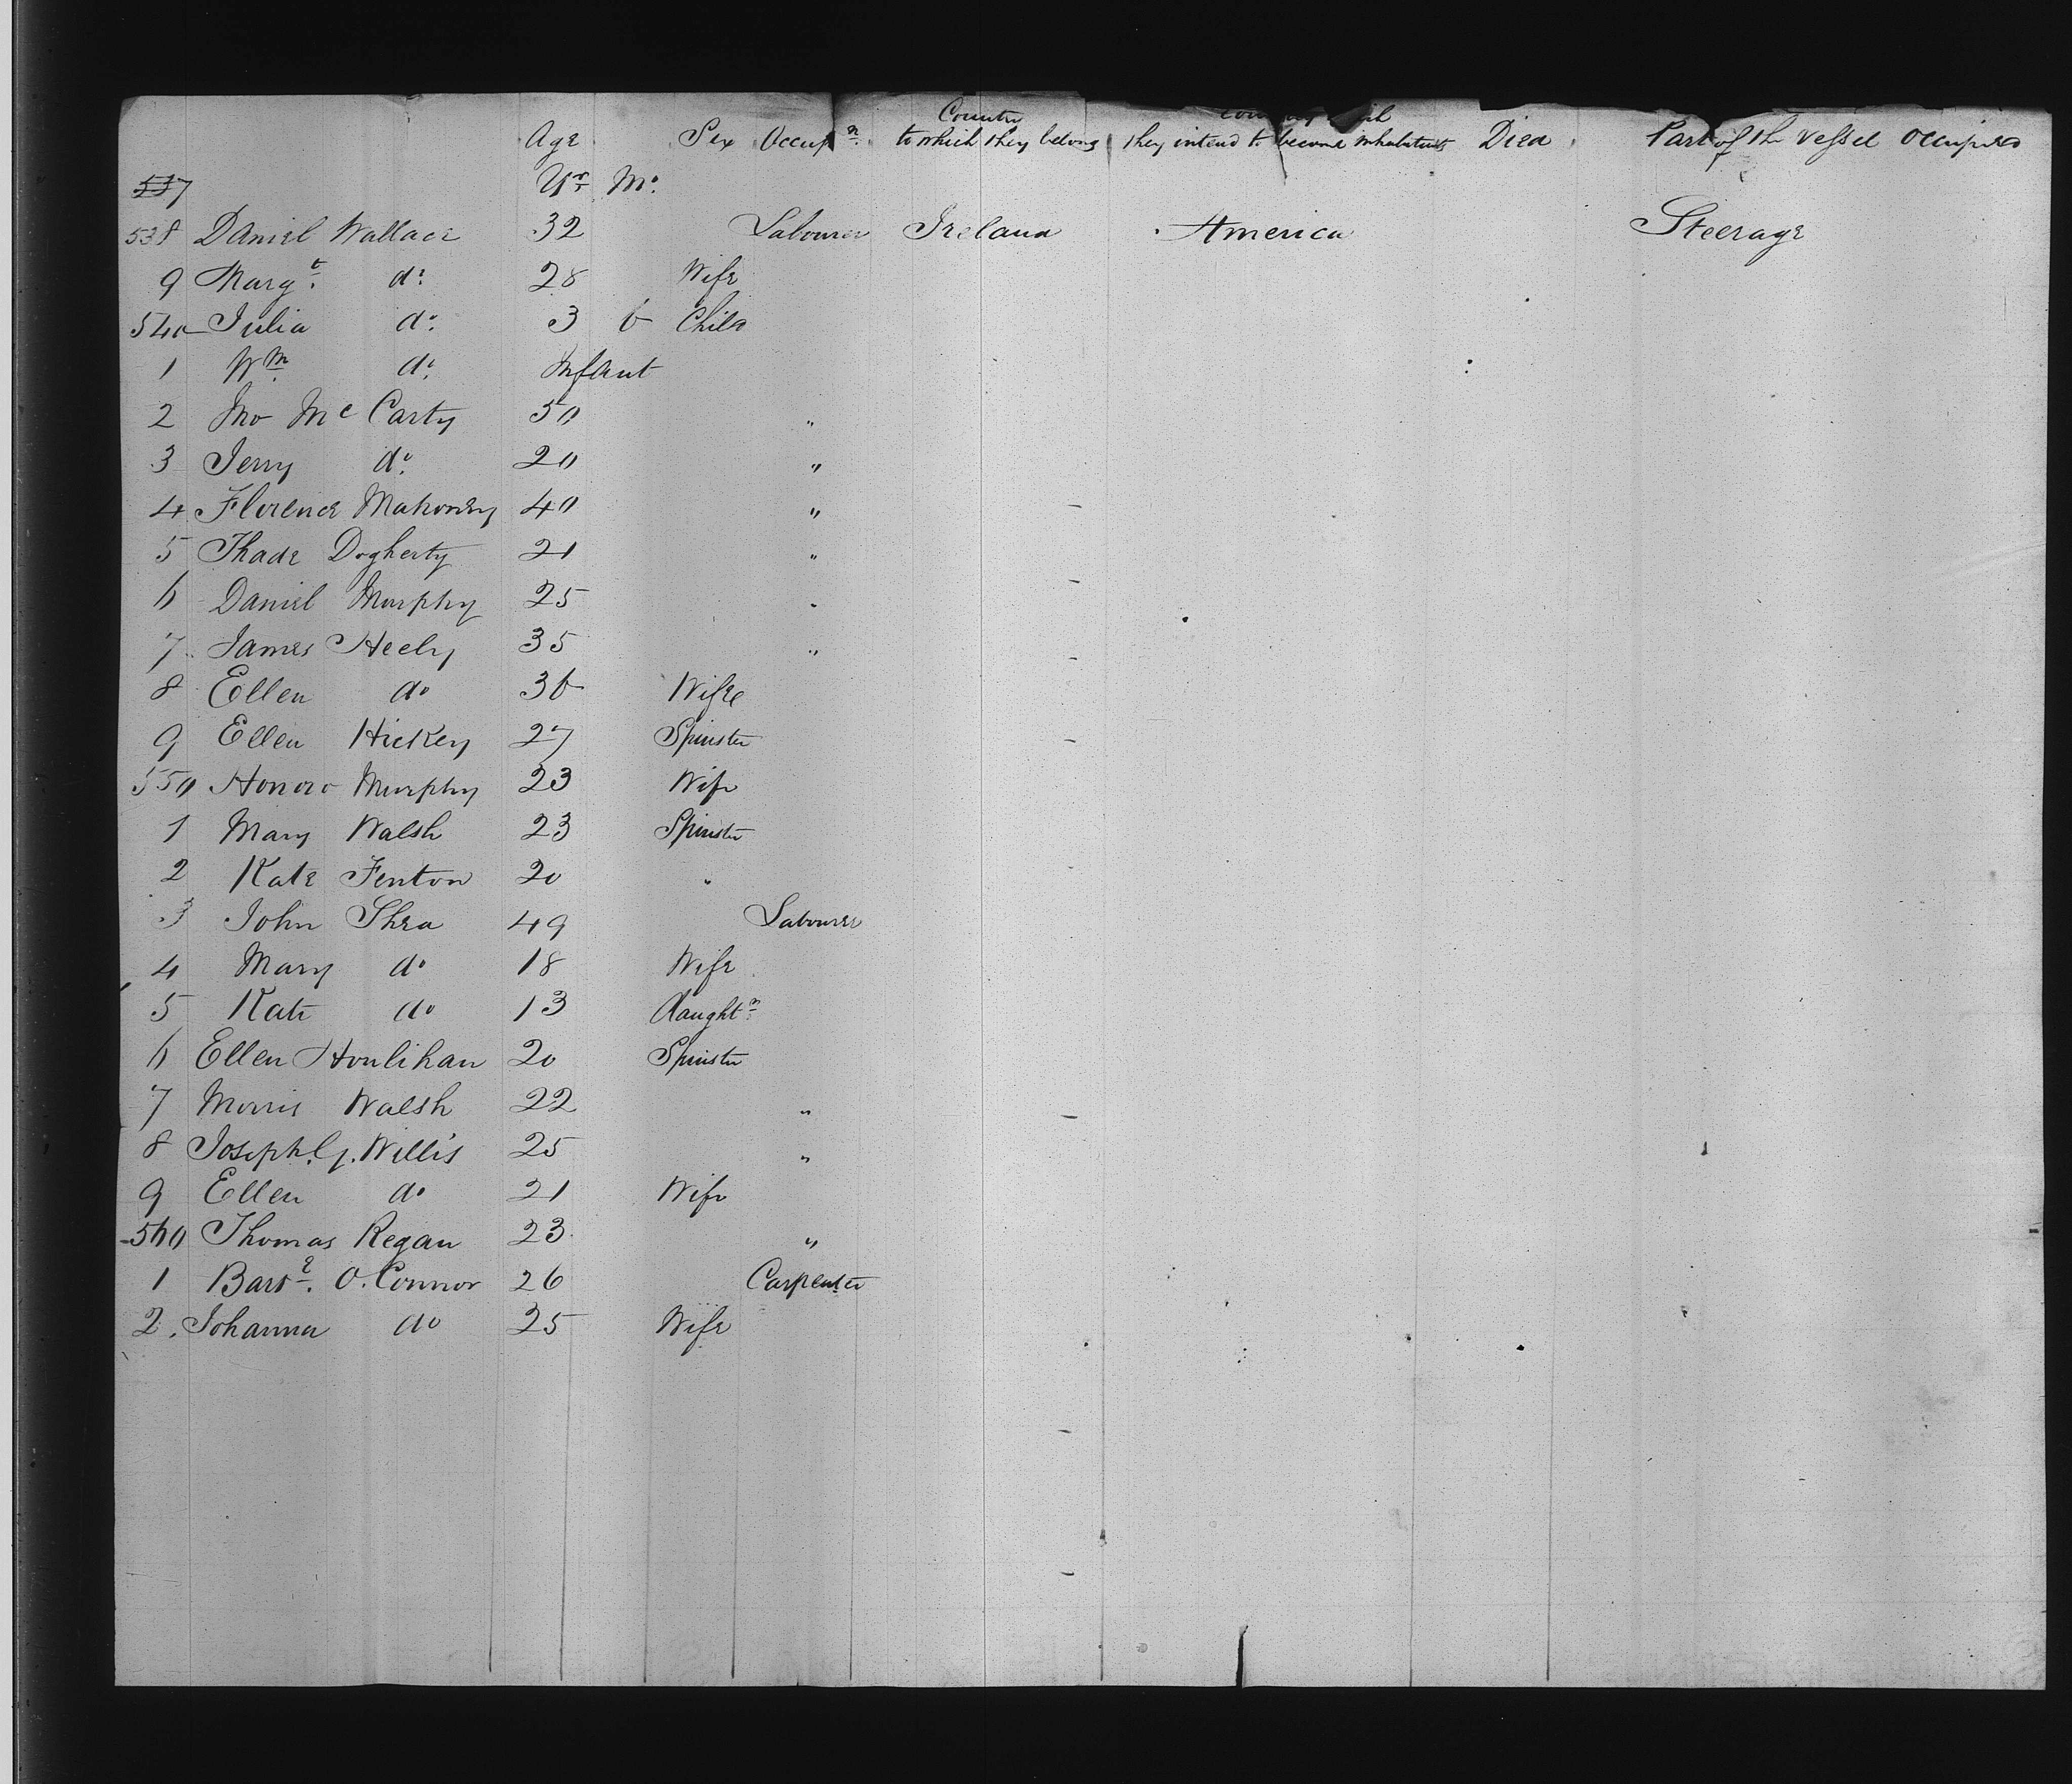 Country Country which
Age Sex Occupn. to which they belong they intend to become inhabitants Died Part of the Vessel Occupied
537 Yr Mo.
538 Daniel Wallace 32 Labourer Ireland America Steerage
9 Margt. do. 28 Wife
540 Julia do. 3 6 Child
1 Wm. do. Infant
2 Jno Mc Carty 50 "
3 Jerry do. 20 "
4 Florence Mahoney 40 "
5 Thade Dogherty 21 "
6 Daniel Murphy 25 "
7 James Heely 35 "
8 Ellen do 36 Wife
9 Ellen Hickey 27 Spinster
550 Honoro Murphy 23 Wife
1 Mary Walsh 23 Spinster
2 Kate Fenton 20 "
3 John Shea 49 Labourer
4 Mary do 18 Wife
5 Kate do 13 daughtr.
6 Ellen Houlihan 20 Spinster
7 Morris Walsh 22 "
8 Joseph G. Willis 25 "
9 Ellen do 21 Wife
560 Thomas Regan 23 "
1 O. Connor 26 Carpenter
2. Johanna do 25 Wife